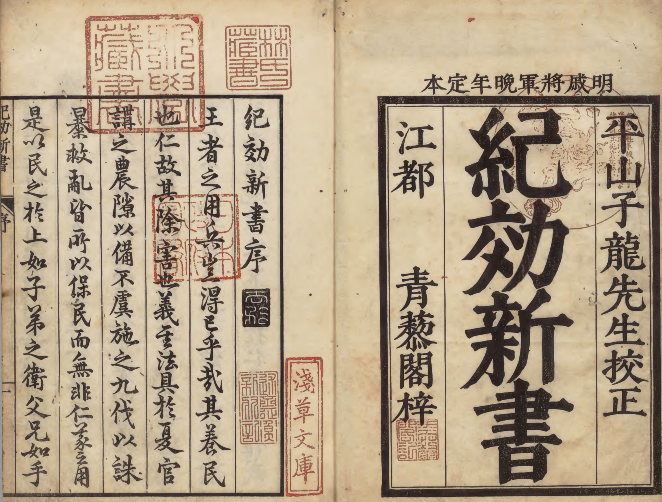 明戚將軍晩年定本
平山子龍先生挍正
紀効新書
江都 青藜閣梓
林氏藏書
淺草文庫
紀効新書序
王者之用兵豈得已乎哉其養民
也仁故其除害也義法具於夏官
講之農隙以備不虞施之九伐以誅
暴救亂皆所以保民而無非仁義之用
是以民之於上如子弟之衛父兄如手
紀効新書 序